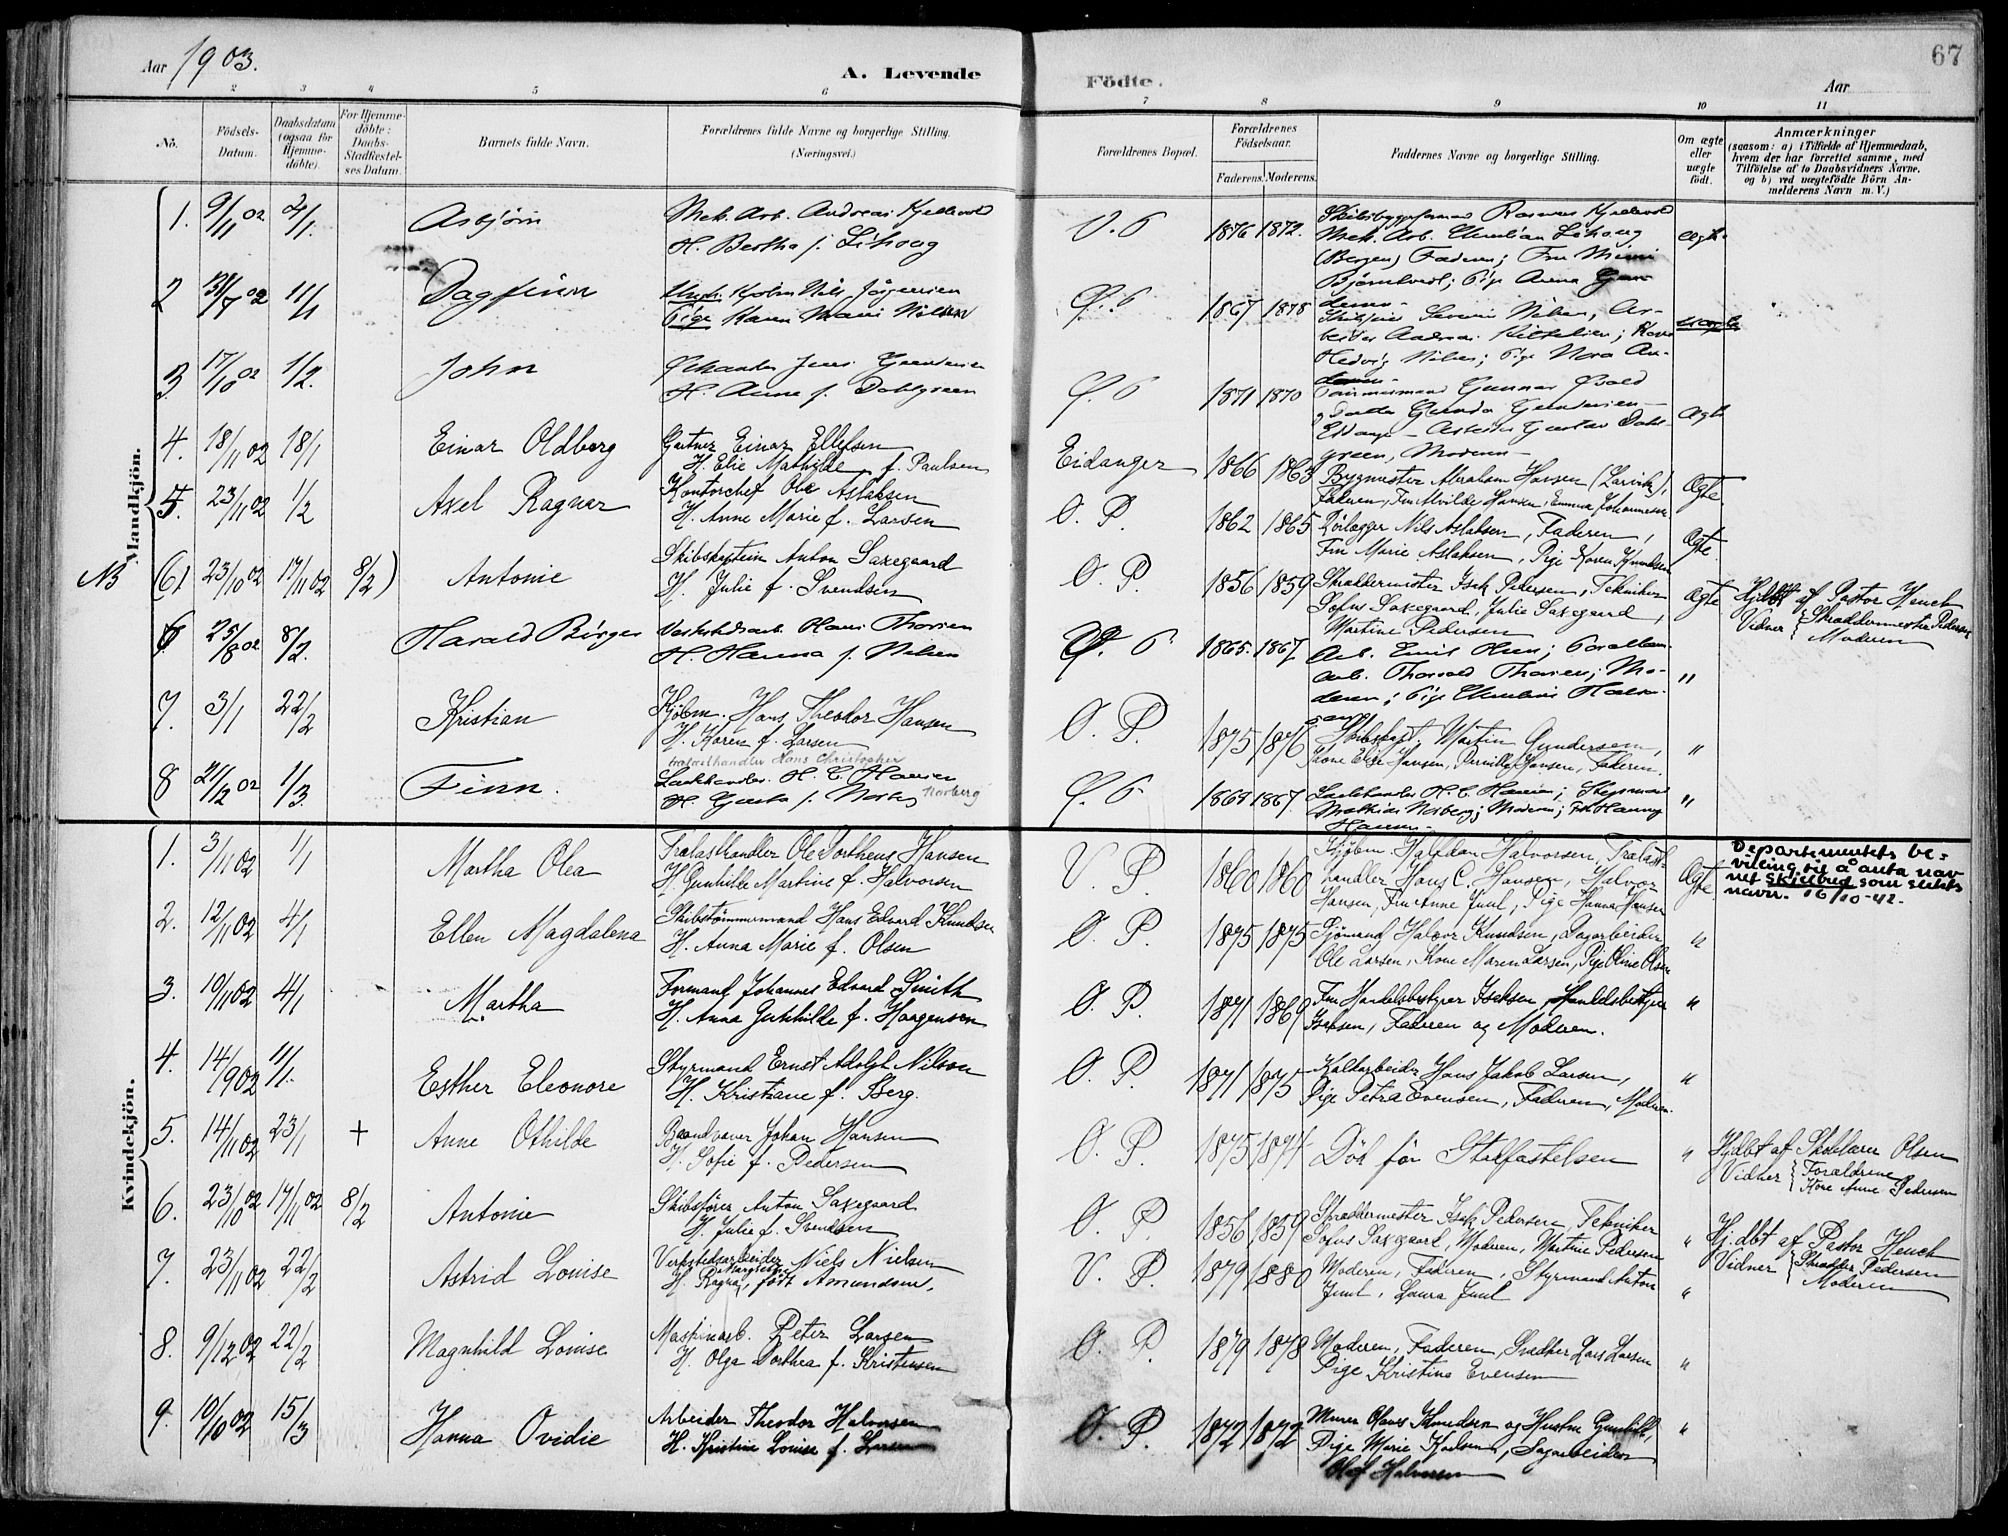 Aar 1903.
A. Levende
Födte.
Aar
67
2 3 4 5 6 7 8 9 10 11
No.
Födsels-Datum.
Daabsdatum (ogsaa for Hjemme-döbte).
For Hjemme-döbte: Daabs-Stadfæstelses Datum.
Barnets fulde Navn.
Forældrenes fulde Navne og borgerlige Stilling.
(Næringsvei.)
Forældrenes Bopæl.
Forældrenes Födselsaar.
Faderens. Moderens.
Faddernes Navne og borgerlige Stilling.
Om ægte eller uægte födt.
Anmærkninger
(saasom: a) i Tilfælde af Hjemmedaab, hvem der har forrettet samme, med Tilföielse af to Daabsvidners Navne, og b) ved uægtefödte Börn Anmelderens Navn m. V.)
Mandkjön.
1. 9/11 02 4/1. Asbjørn
Mek. Arb. Andreas Kjellevold
H. Bertha f. Lihoug
V. P. 1876 1872.
Skibsbyggeformand Rasmus Kjellevold
Mek. Arb. Lihoug
(Bergen) Faderen; Fru
Pige Anna
Ægte
2 31/7 02 11/1 Dagfinn
Ungk. Kjøbm Nils Jörgensen
Pige Karen Marie Nilsen
Ø. P. 1867 1878
Severin Nilsen, Ar-
beider Andreas
Hedvig Nilsen; Pige Nora An-
dersen
uægte
3 17/10 02 1/2. John
Jens Gundersen
H. Anna f. Dahlgreen
Ø. P. 1871 1870
Tømmermand Gunnar
Gunda Gundersen
Gustav Dahl-
green, Moderen
Ægte
4. 18/11 02 18/1 Einar Oldberg
Gartner Einar Ellefsen
H. Elie Mathilde f. Paulsen
Eidanger 1866 1863
Bygmester Abraham Hansen (Larvik),
Faderen, Fru Alvilde Hansen, Emma Johannessen
Ægte
5. 23/11 02 1/2 Axel Ragnar
Kontorchef Ole Aslaksen
H. Anne Marie f. Larsen
Ø. P. 1862 1865
Rörlægger Nils Aslaksen, Faderen,
Fru Marie Aslaksen, Pige Karen Knudsen
Ægte
NB (6) 23/10 02 17/11 02 8/2) Antonie
Skibskaptein Anton Saxegaard
H. Julie f. Svendsen
Ø. P. 1856 1859
Skræddermester Isak Pedersen, Tekniker
Sofus Saxegaard, Julie Saxegaard,
Martine Pedersen
Ægte
Hjdbt af Pastor Hench
Vidner { Skræddermester Pedersen
Moderen
6. 25/8 02 8/2. Harald Birger
Verkstedsarb. Hans Thorsen
H. Hanna f. Nilsen
Ø. P. 1865. 1867
Arb. Emil
Arb. Thorvald Thorsen; Mo-
deren; Pige
"
7. 3/1 22/2 Kristian
Kjöbm. Hans Theodor Hansen
H. Karen f. Larsen
Ø. P. 1875 1876
Skibskapt. Martin Gundersen,
Kone Elise Hansen, Pernille Hansen, Faderen.
"
8 21/12 02 1/3. Finn.
trælasthandler Hans Christopher
H. C. Hansen
H. f. Norberg
Norberg
Ø. P. 1867.
H. C. Hansen;
Mathias Norberg; Moderen; Frk Hanny
Hansen
"
Kvindekjön.
1. 3/11 02 1/1 Martha Olea
Trælasthandler Ole Dortheus Hansen
H. Gunhilde Martine f. Halvorsen
V. P. 1860 1860
Kjöbm Halfdan Halvorsen, Trælast-
handler Hans C. Hansen, Halvor
Hansen, Fru Anne Juul, Pige Hanna Hansen
Ægte
Departementets be-
villing til å anta nav
net Skjelbred som slekts
navn. 16/10-42.
2. 12/11 02 4/1 Ellen Magdalena
Skibstømmermand Hans Edvard Knudsen
H. Anna Marie f. Olsen
Ø. P. 1875 1875
Sjömand Halvor Knudsen, Dagarbeider
Ole Larsen, Kone Maren Larsen, Pige Oline Olsen
"
3. 19/11 02 4/1 Martha
Formand Johannes Edvard Smith
H. Anna Gunhilde f. Haagensen
Ø. P. 1871 1869
Fru Handelsbestyrer Isaksen, Handelsbestyrer
Isaksen, Faderen og Moderen.
"
4. 14/9 02 11/1. Esther Eleonore
Styrmand Ernst Adolf Nilson
H. Kristiane f. Berg.
Ø. P. 1871 1875
Kaldarbeider Hans Jakob Larsen,
Pige Petra Evensen, Faderen, Moderen.
"
5. 14/11 02 23/1 + Anne Othilde
Johan Hansen
H. Sofie f. Pedersen
Ø. P. 1875 1877
Död för Stadfæstelsen
"
Hjdbt af Skolelærer Olsen
Vidner { Forældrene
Kone Anne Pedersen
6. 23/10 02 17/11 02 8/2 Antonie
Skibsförer Anton Saxegaard
H. Julie f. Svendsen
Ø. P. 1856 1859
Skræddermester Isak Pedersen, Tekniker
Sofus Saxegaard, Moderen, Martine Pedersen
"
Hj.dbt af Pastor Hench
Vidner { Skrædder Pedersen
Moderen
7. 23/11 02 22/2 Astrid Louise
Verkstedsarbeider Niels Nielsen
H. Ragna Margrethe, født Amundsen,
V. P. 1879 1880
Moderen, Faderen, Styrmand Anton
Juul, Laura Juul
"
8. 9/12 02 22/2 Magnhild Louise
Maskinarb. Peter Larsen
H. Olga Dorthea f. Kristensen
Ø. P. 1879 1878
Moderen, Faderen, Snedker Lars Larsen
Pige Kristine Evensen
"
9. 10/10 02 15/3 Hanna Ovidie
Arbeider Theodor Halvorsen
H. Kristine Louise f. Larsen
Ø. P. 1872 1872
Murer Knudsen og Hustru Gunhild,
Pige Marie Karlsen, Sagarbeider
Olaf Halvorsen
"